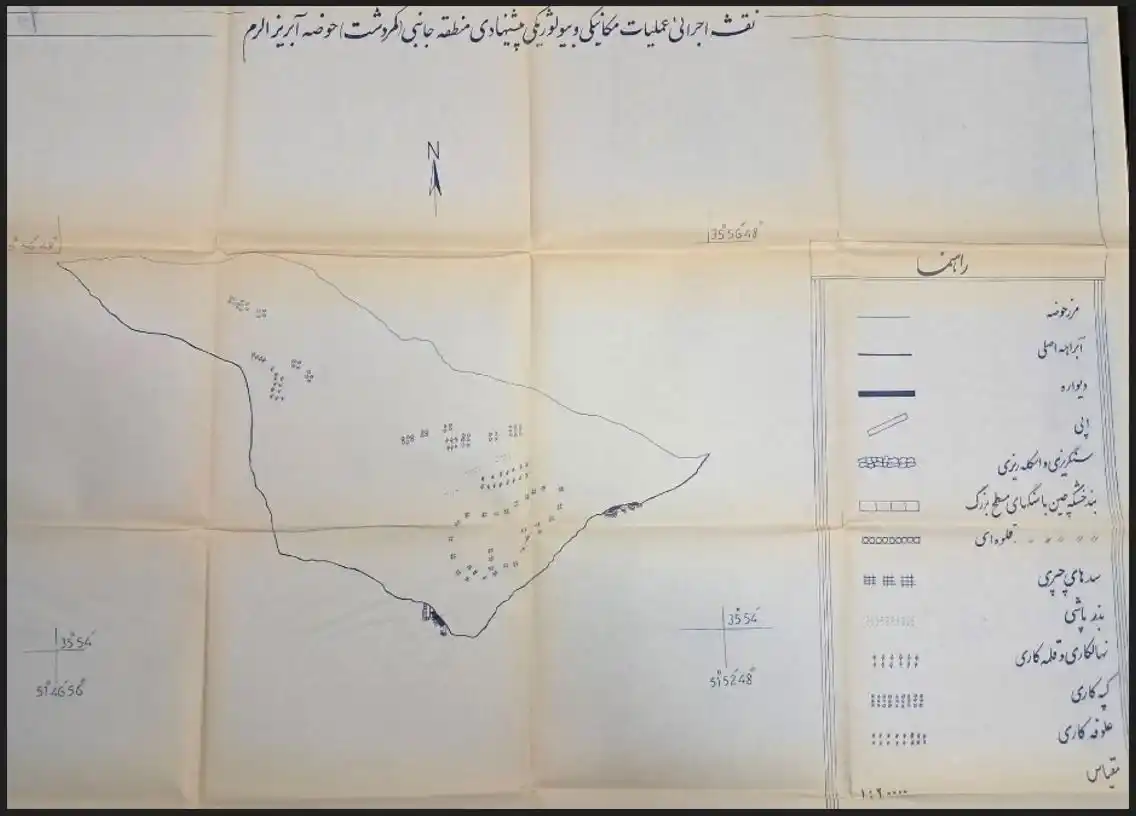 نقشه اجرائی عملیات مکانیکی و بیولوژیکی پیشنهادی منطقه جانبی (کمردشت) حوضه آبریز الرم
N
35° 56′ 48″
راهنما
مرز حوضه
آبراهه اصلی
دیواره
اپی
سنگریزی و اسکله ریزی
بند خشکه چین با سنگهای مسطح بزرگ
〃 〃 〃 〃 قلوه ای
سدهای چپری
بذر پاشی
نهالکاری و قلمه کاری
کپه کاری
علوفه کاری
35° 54′
51° 46′ 56″
35° 54′
51° 52′ 48″
مقیاس